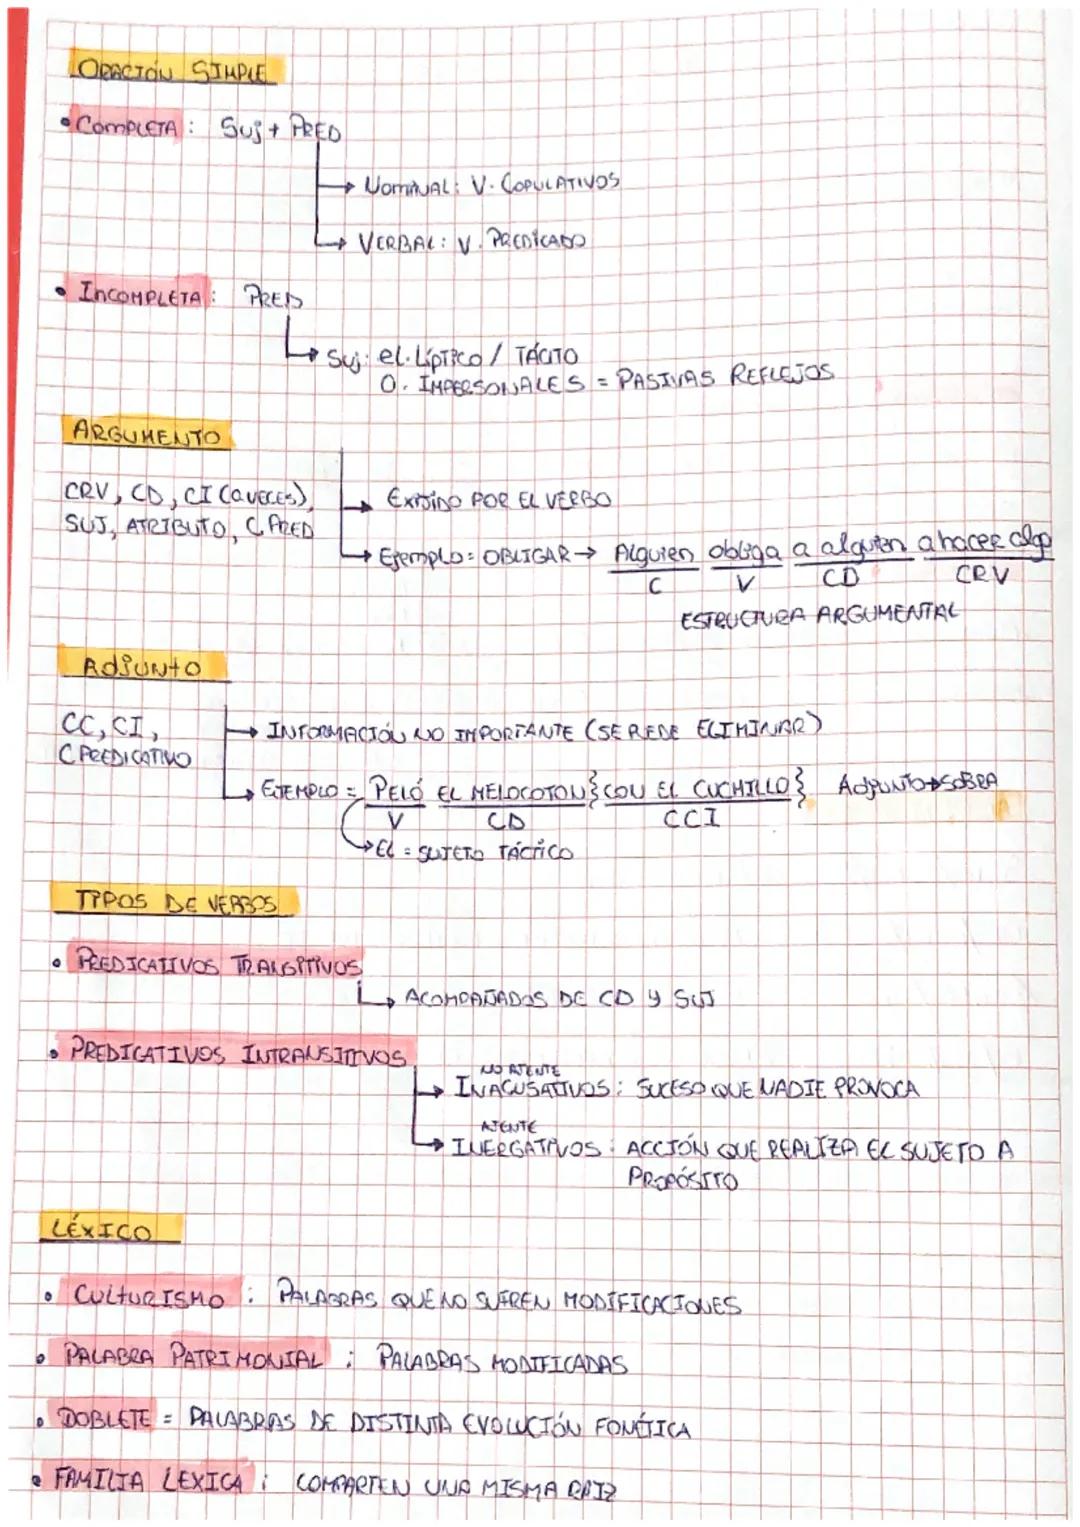 ORACIÓN SIMPLE
• COMPLETA : Suj + PRED
→ NOMINAL: V. COPULATIVOS
→ VERBAL: V. PREDICADO
• INCOMPLETA : PRED
→ Suj: el.LÍPTICO / TÁCITO
O. IMPERSONALES = PASIVAS REFLEJOS
ARGUMENTO
CRV, CD, CI (a VECES),
SUJ, ATRIBUTO, C.PRED
→ EXIJIDO POR EL VERBO
→ Ejemplo = OBLIGAR → Alguien obliga a alguien a hacer algo
C V CD CRV
ESTRUCTURA ARGUMENTAL
ADJUNTO
CC, CI,
C PREDICATIVO
→ INFORMACIÓN NO IMPORTANTE (SE PUEDE ELIMINAR)
→ EJEMPLO = PELÓ EL MELOCOTON } CON EL CUCHILLO } ADJUNTO → SOBRA
V CD CCI
→ EL = SUJETO TÁCTICO
TIPOS DE VERBOS
• PREDICATIVOS TRANSITIVOS
→ ACOMPAÑADOS DE CD Y SUJ
• PREDICATIVOS INTRANSITIVOS
NO AJENTE
→ INACUSATIVOS : SUCESO QUE NADIE PROVOCA
AJENTE
→ INERGATIVOS : ACCIÓN QUE REALIZA EL SUJETO A
PROPÓSITO
LÉXICO
• CULTURISMO : PALABRAS QUE NO SUFREN MODIFICACIONES
• PALABRA PATRIMONIAL : PALABRAS MODIFICADAS
• DOBLETE = PALABRAS DE DISTINTA EVOLUCIÓN FONÉTICA
• FAMILIA LEXICA : COMPARTEN UNA MISMA RAIZ